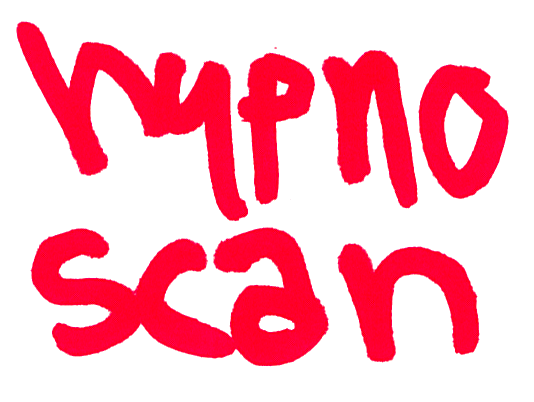 hypno
scan